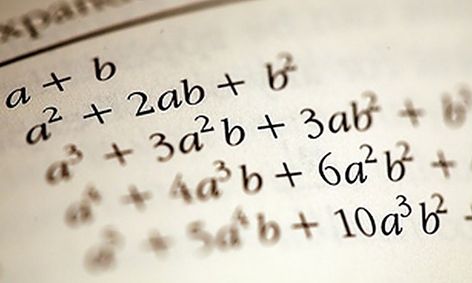 a + b
a² + 2ab + b²
a³ + 3a²b + 3ab² + b
a⁴ + 4a³b + 6a²b² +
a⁵ + 5a⁴b + 10a³b² +